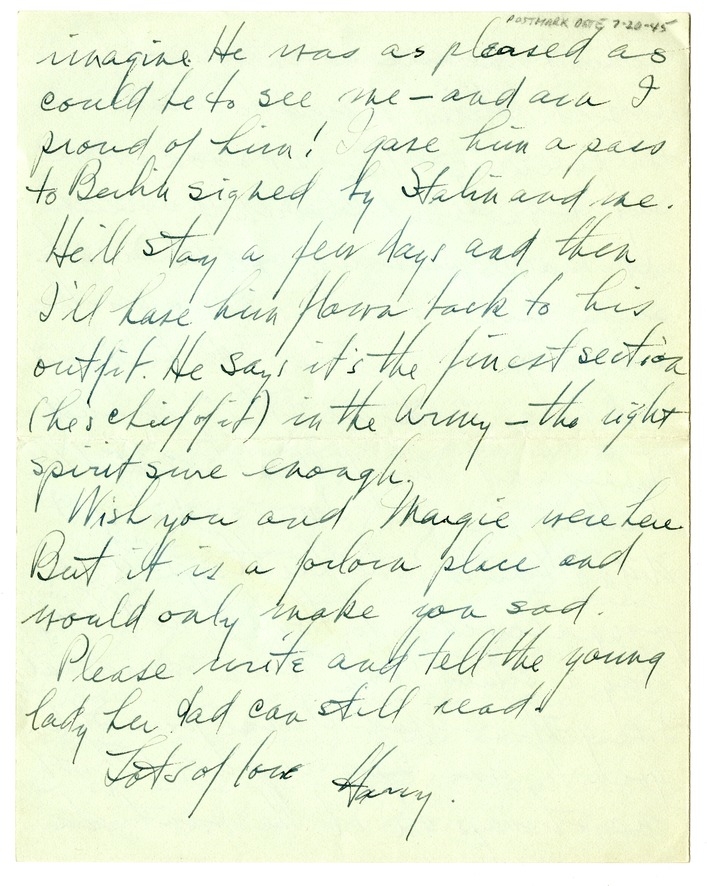 POSTMARK DATE 7-20-45
imagine. He was as pleased as
could be to see me – and am I
proud of him! I gave him a pass
to Berlin signed by Stalin and me.
He'll stay a few days and then
I'll have him flown back to his
outfit. He says it's the finest section
(he's chief of it) in the Army – the right
spirit sure enough.
Wish you and Margie were here.
But it is a forlorn place and
would only make you sad.
Please write and tell the young
lady her dad can still read.
Lots of love Harry.